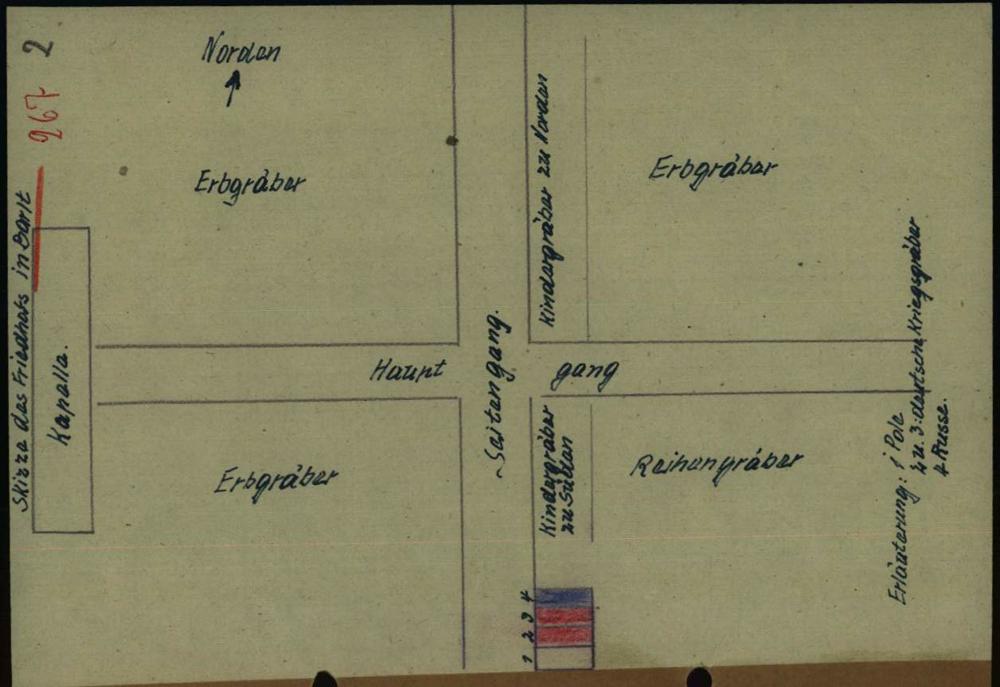 Skizze des Friedhofs in Barlt
267 2
Norden
Erbgräber
Kindergräber zu Norden
Erbgräber
Kapelle.
Haupt gang
Seitengang.
Erbgräber
Kindergräber
zu Süden
Reihengräber
1 2 3 4
Erläuterung: 1 Pole
2 u. 3: deutsche Kriegsgräber
4 Russe.